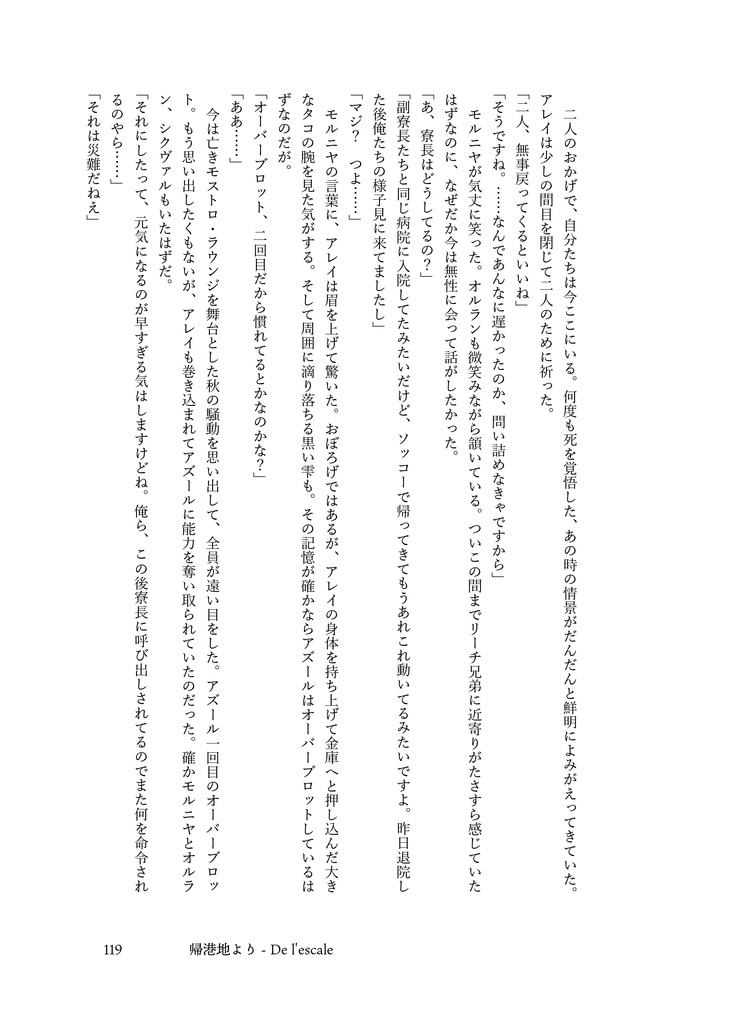 二人のおかげで、自分たちは今ここにいる。何度も死を覚悟した、あの時の情景がだんだんと鮮明によみがえってきていた。
アレイは少しの間目を閉じて二人のために祈った。
「二人、無事戻ってくるといいね」
「そうですね。……なんであんなに遅かったのか、問い詰めなきゃですから」
モルニヤが気丈に笑った。オルランも微笑みながら頷いている。ついこの間までリーチ兄弟に近寄りがたさすら感じていた
はずなのに、なぜだか今は無性に会って話がしたかった。
「あ、寮長はどうしてるの？」
「副寮長たちと同じ病院に入院してたみたいだけど、ソッコーで帰ってきてもうあれこれ動いてるみたいですよ。昨日退院し
た後俺たちの様子見に来てましたし」
「マジ？　つよ……」
モルニヤの言葉に、アレイは眉を上げて驚いた。おぼろげではあるが、アレイの身体を持ち上げて金庫へと押し込んだ大き
なタコの腕を見た気がする。そして周囲に滴り落ちる黒い雫も。その記憶が確かならアズールはオーバーブロットしているは
ずなのだが。
「オーバーブロット、二回目だから慣れてるとかなのかな？」
「ああ……」
今は亡きモストロ・ラウンジを舞台とした秋の騒動を思い出して、全員が遠い目をした。アズール一回目のオーバーブロッ
ト。もう思い出したくもないが、アレイも巻き込まれてアズールに能力を奪い取られていたのだった。確かモルニヤとオルラ
ン、シクヴァルもいたはずだ。
「それにしたって、元気になるのが早すぎる気はしますけどね。俺ら、この後寮長に呼び出しされてるのでまた何を命令され
るのやら……」
「それは災難だねえ」
119
帰港地より - De l'escale